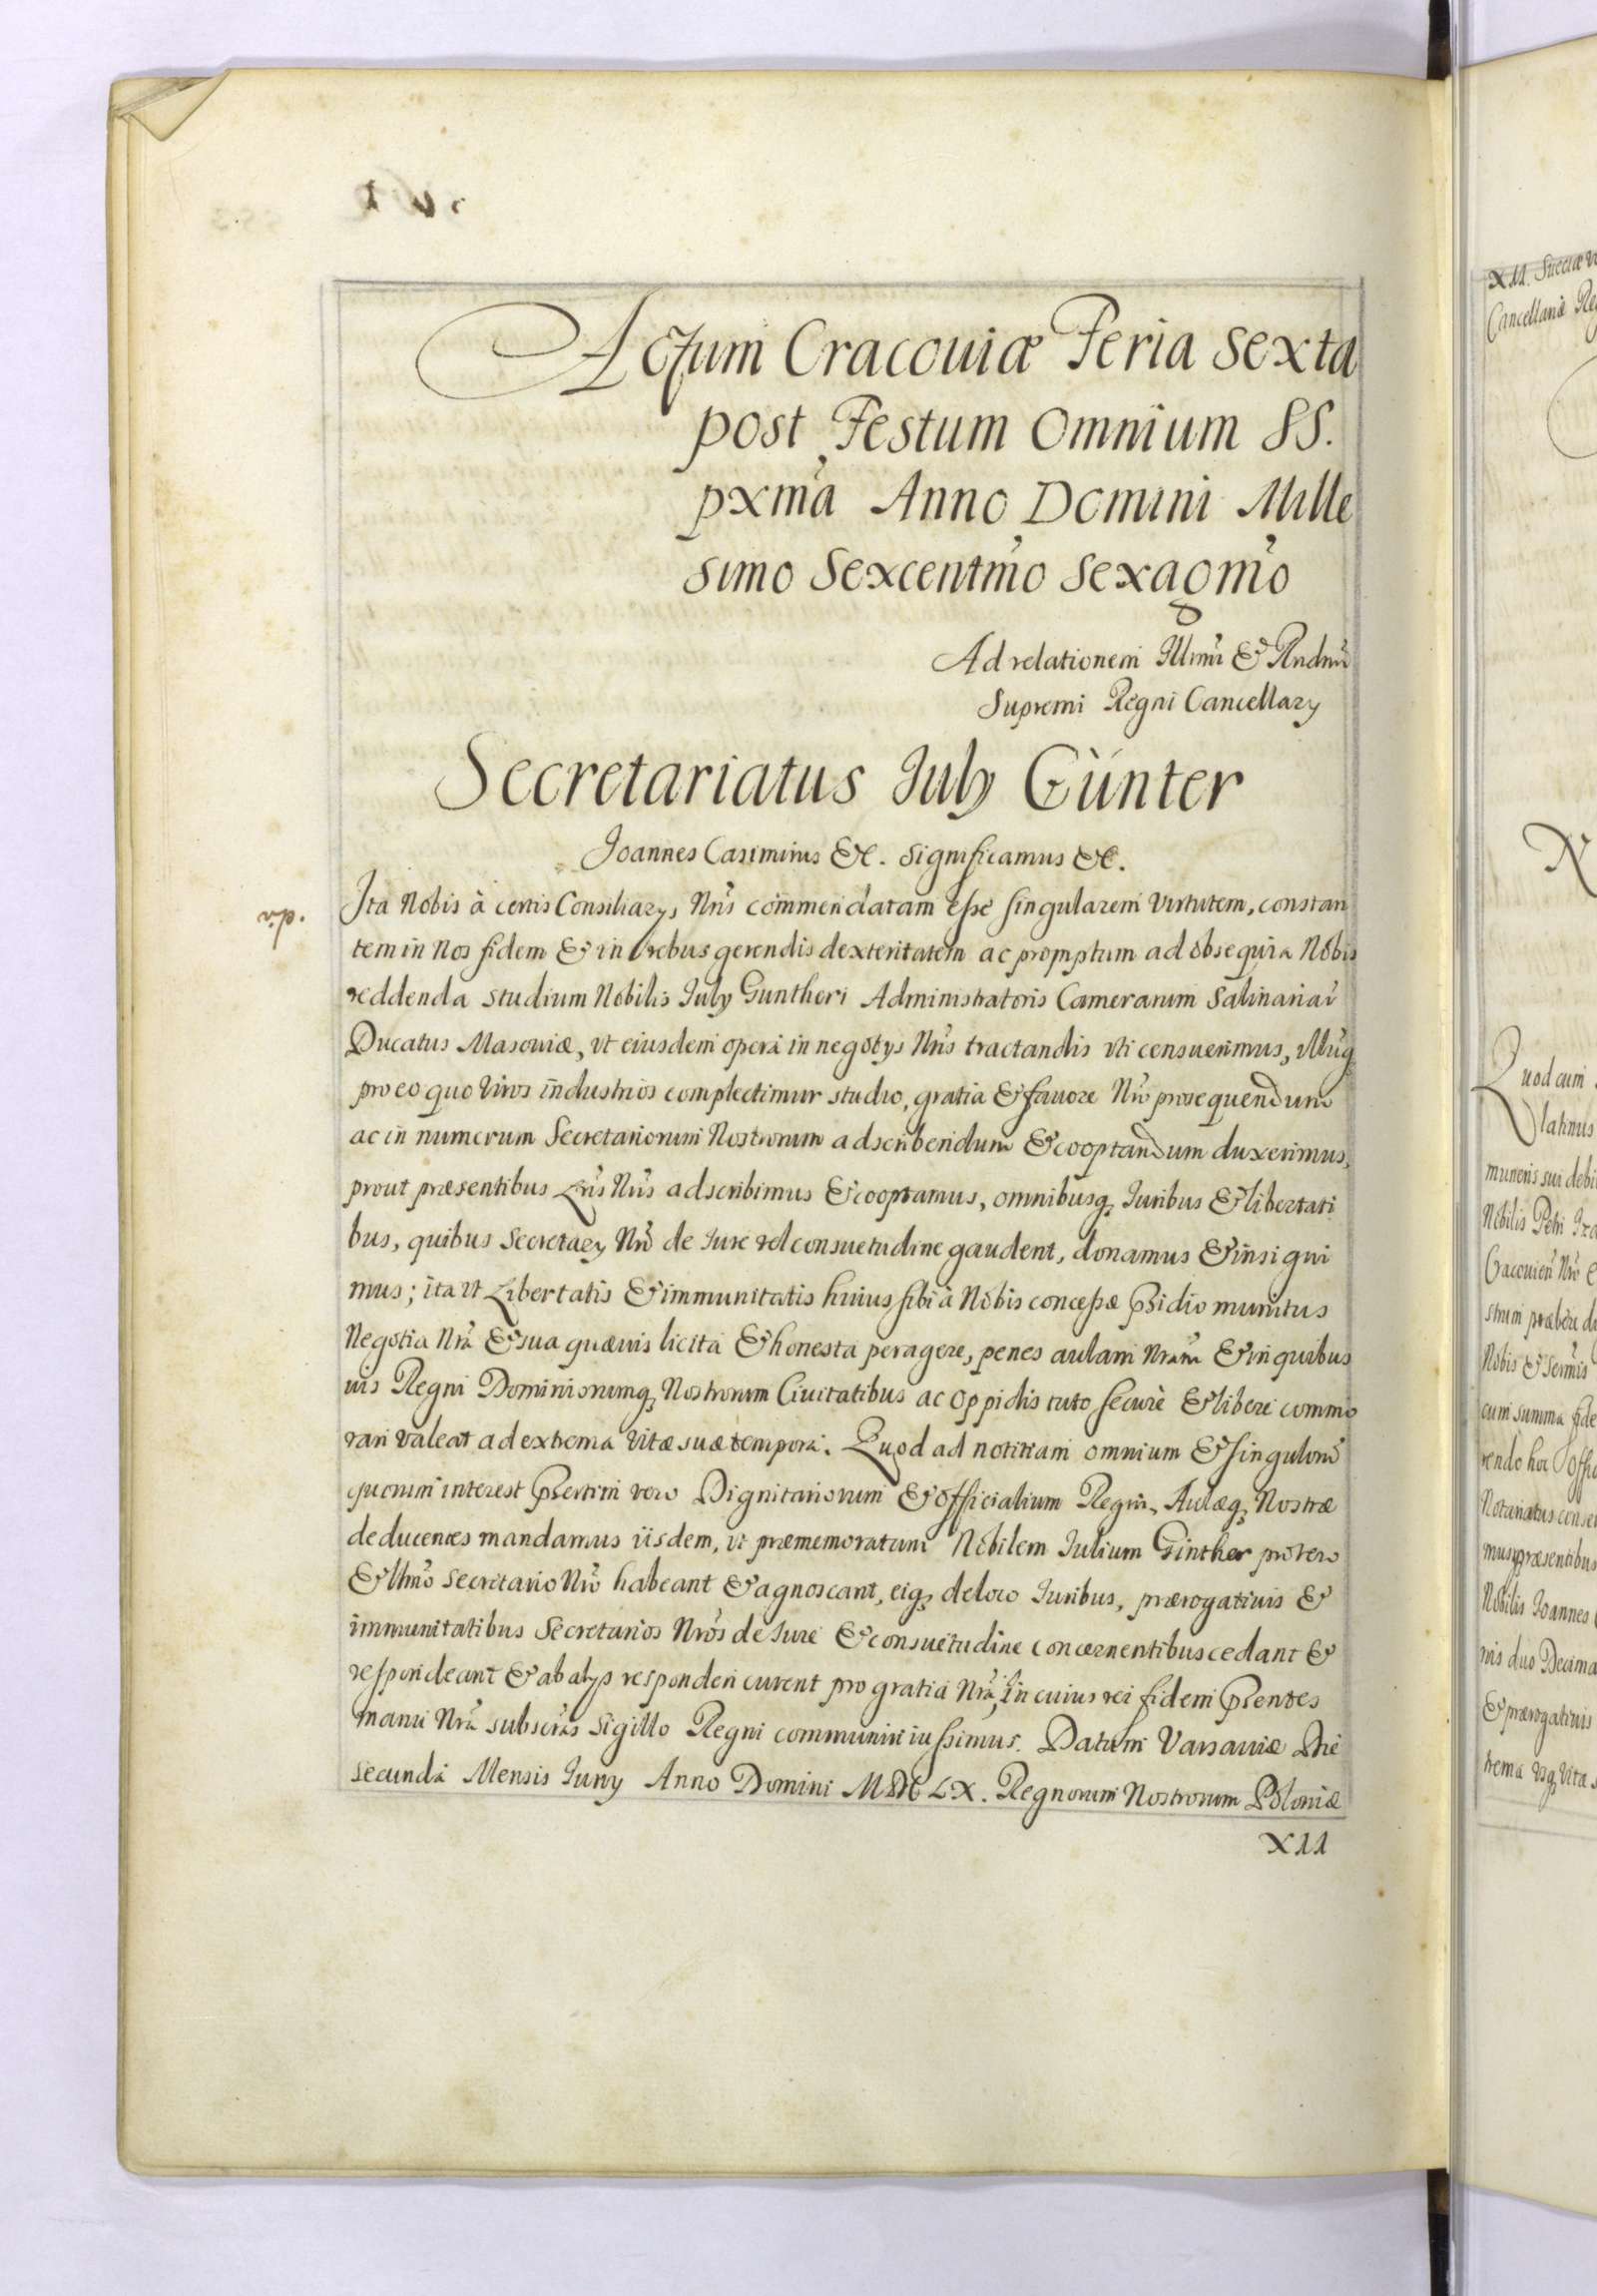 Actum Cracouiæ Feria Sexta
post Festum Omnium SS.
pxma Anno Domini Mille
simo Sexcentmo Sexagmo
Ad relationem Illmi & Rndmi
Supremi Regni Cancellary
Secretariatus July Günter
Joannes Casimirus &c. Significamus &c.
Ita Nobis à certis Consiliarys Nris commendatam esse singularem Virtutem, constan
tem in Nos fidem & in rebus gerendis dexteritatem ac promptum ad obsequia Nobis
reddenda studium Nobilis July Guntheri Administratoris Camerarum Salinariar
Ducatus Masouiæ, vt eiusdem opera in negotys Nris tractandis vti censuerimus, illumq
pro eo quo Viros industrios complectimur studio, gratia & fauore Nro prosequendum
ac in numerum Secretariorum Nostrorum adscribendum & cooptandum duxerimus,
prout præsentibus Lris Nris adscribimus & cooptamus, omnibusq Iuribus & libertati
bus, quibus Secretary Nri de Iure vel consuetudine gaudent, donamus & insigni
mus; ita vt Libertatis & immunitatis huius sibi à Nobis concessæ Psidio munitus
Negotia Nra & sua quæuis licita & honesta peragere, penes aulam Nram & in quibus
uis Regni Dominiorumq Nostrorum Ciuitatibus ac Oppidis tuto secure & libere commo
rari valeat ad extrema Vitæ suæ tempora. Quod ad notitiam omnium & singulorũ
quorum interest Psertim vero Dignitariorum & Officialium Regni, Aulæq Nostræ
deducentes mandamus iisdem, vt præmemoratum Nobilem Julium Ginther pro vero
& lltmo Secretario Nro habeant & agnoscant, eiq de loco Iuribus, prærogatiuis &
immunitatibus Secretarios Nros de Iure & consuetudine concernentibus cedant &
respondeant & ab alys responderi curent pro gratia Nra, In cuius rei fidem Psentes
manu Nra subscras Sigillo Regni communiri iussimus. Datum Varsauiæ Die
secunda Mensis Iuny Anno Domini MDCLX. Regnorum Nostrorum Poloniæ
XII
XII. Sueciæ
Cancellariæ
N
Quod cum
latinus
muneris sui
Nobilis Petri
Cracouien Nro
præbere
Nobis &
cum summa
rendo hoc
Notariatus
mus præsentibus
Nobilis Joannes
nis duo Decima
& prærogatiuis
trema vsq Vitæ